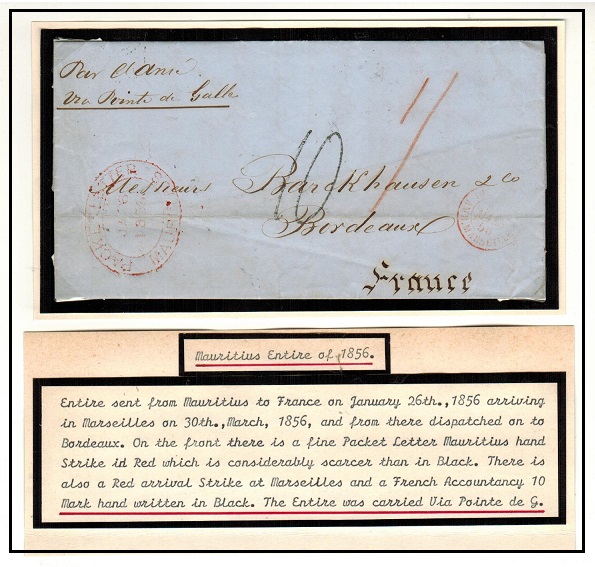 Via Pointe de Galle
PACKET LETTER
MAURITIUS
10
Messieurs Barckhausen & Co
Bordeaux
France
Mauritius Entire of 1856.
Entire sent from Mauritius to France on January 26th.,1856 arriving
in Marseilles on 30th.,March, 1856, and from there dispatched on to
Bordeaux. On the front there is a fine Packet Letter Mauritius hand
Strike in Red which is considerably scarcer than in Black. There is
also a Red arrival Strike at Marseilles and a French Accountancy 10
Mark hand written in Black. The Entire was carried Via Pointe de G.